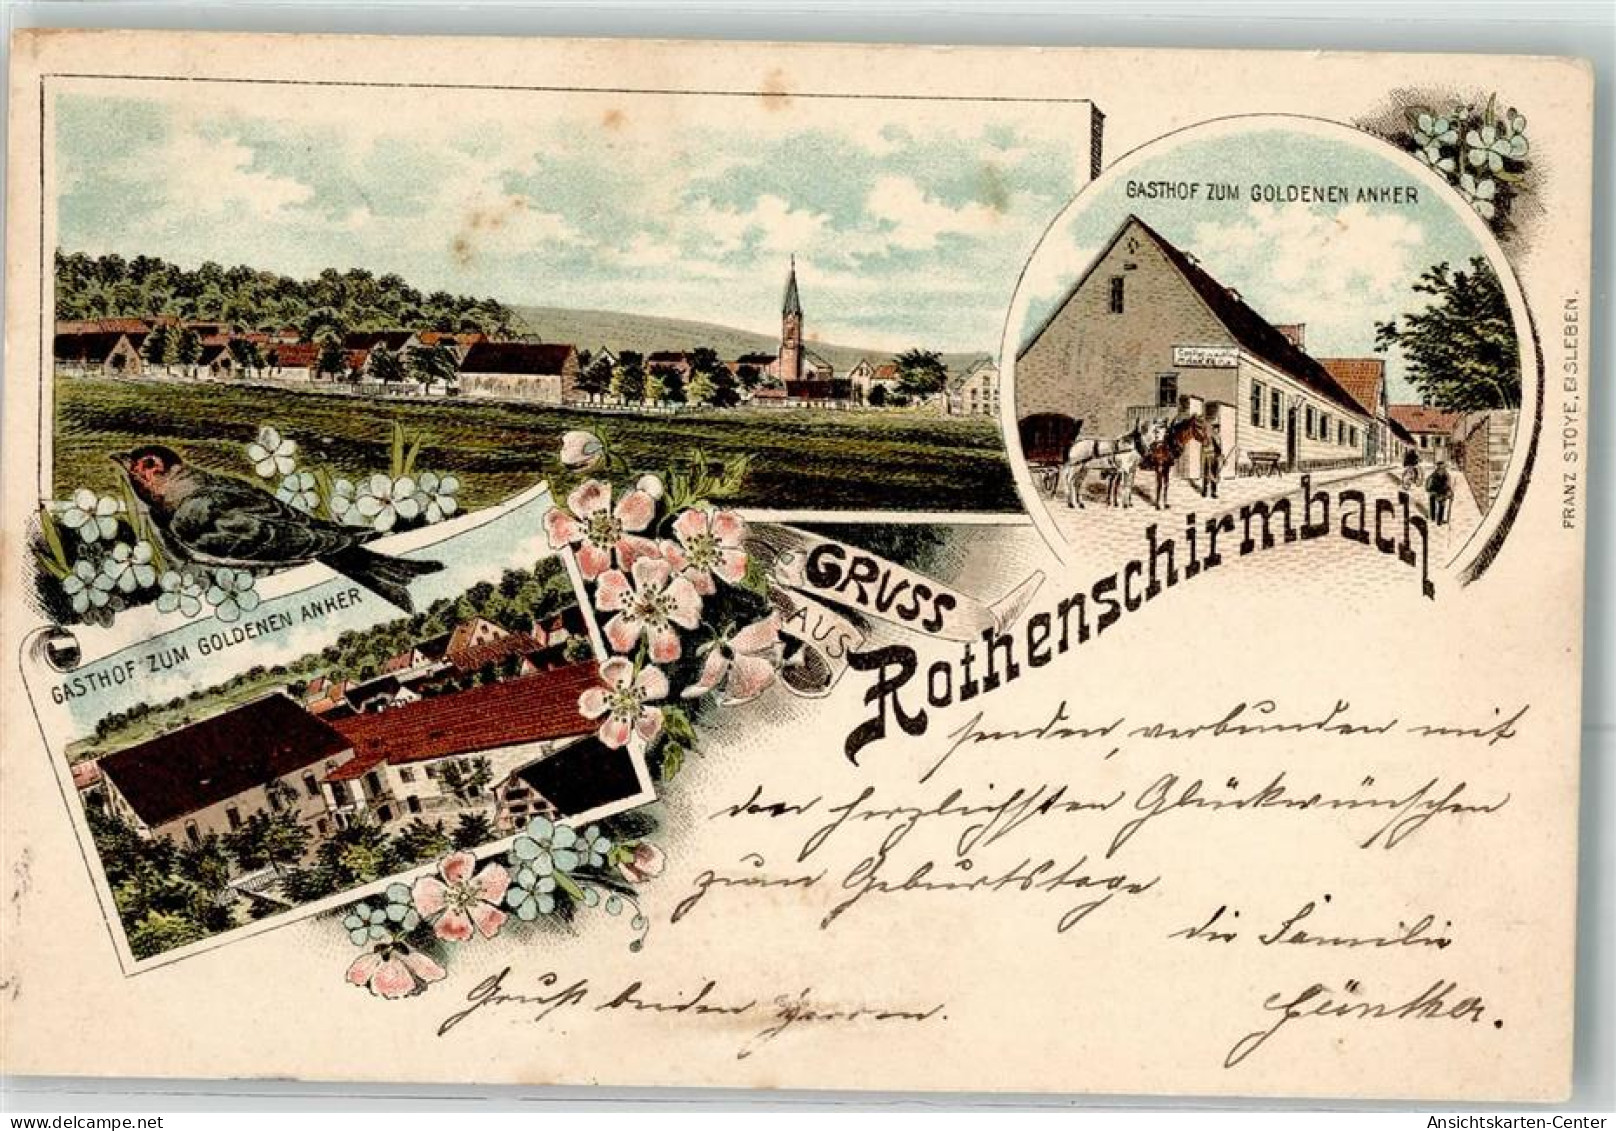 GASTHOF ZUM GOLDENEN ANKER
GASTHOF ZUM GOLDENEN ANKER
GRUSS
AUS
Rothenschirmbach
FRANZ STOYE, EISLEBEN.
senden, verbunden mit
den herzlichsten Glückwünschen
zum Geburtstage
die Familie
Günther.
Gruß beiden Herren.
Ansichtskarten-Center